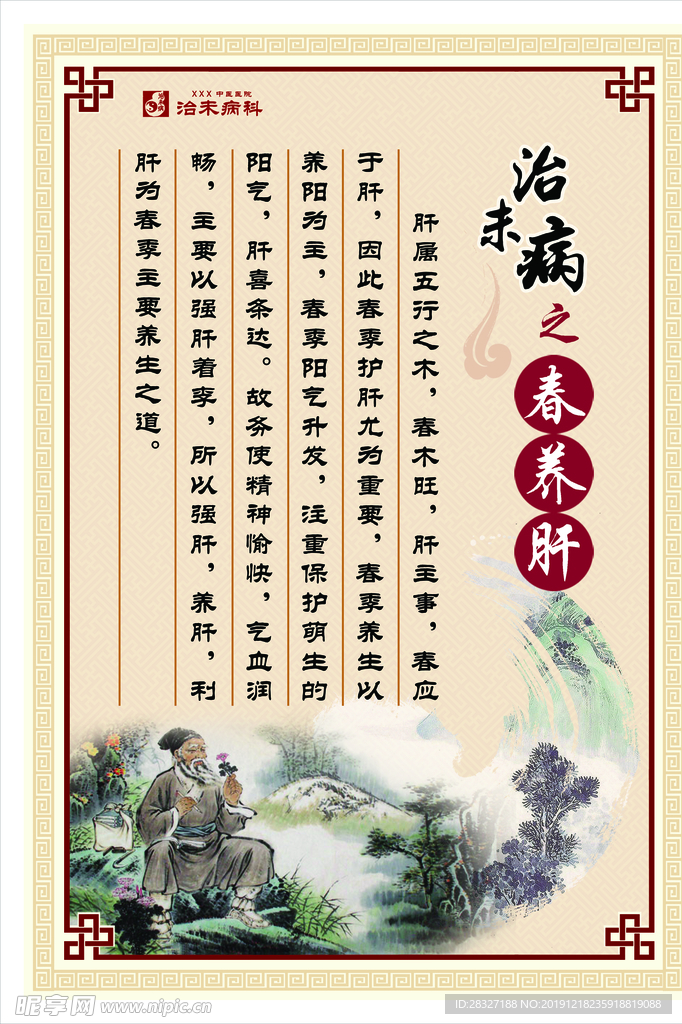 XXX 中医医院
治未病科
治未病
之
春养肝
肝属五行之木，春木旺，肝主事，春应
于肝，因此春季护肝尤为重要，春季养生以
养阳为主，春季阳气升发，注重保护萌生的
阳气，肝喜条达。故务使精神愉快，气血润
畅，主要以强肝着李，所以强肝，养肝，利
肝为春季主要养生之道。
昵享网 www.nipic.cn
ID:28327188 NO:20191218235918819088